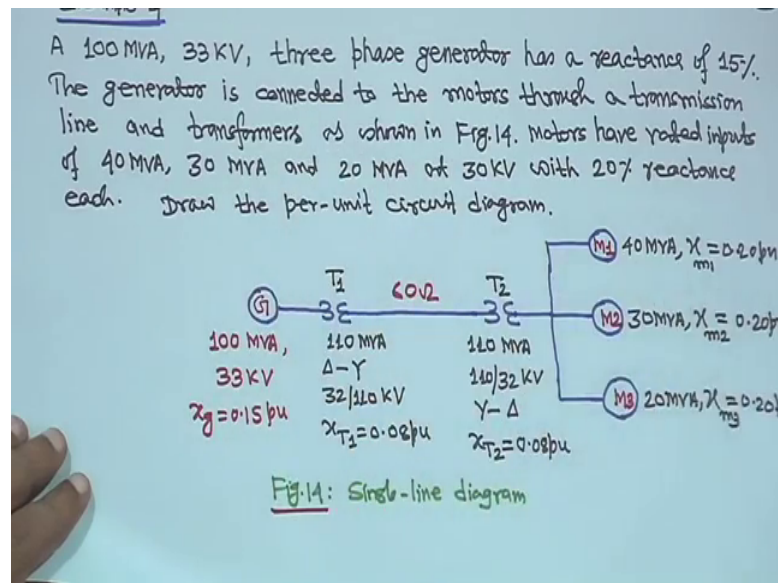 A 100 MVA, 33 KV, three phase generator has a reactance of 15%.
The generator is connected to the motors through a transmission
line and transformers as shown in Fig.14. Motors have rated inputs
of 40 MVA, 30 MVA and 20 MVA at 30 KV with 20% reactance
each. Draw the per-unit circuit diagram.
M1 40 MVA, x_m1 = 0.20pu
T1 60Ω T2
G
M2 30MVA, x_m2 = 0.20p
100 MVA, 110 MVA 110 MVA
33 KV Δ-Y 110/32 KV
x_g=0.15pu 32/110 KV Y-Δ
M3 20MVA, x_m3 = 0.20
x_T1=0.08pu x_T2=0.08pu
Fig.14: Single-line diagram